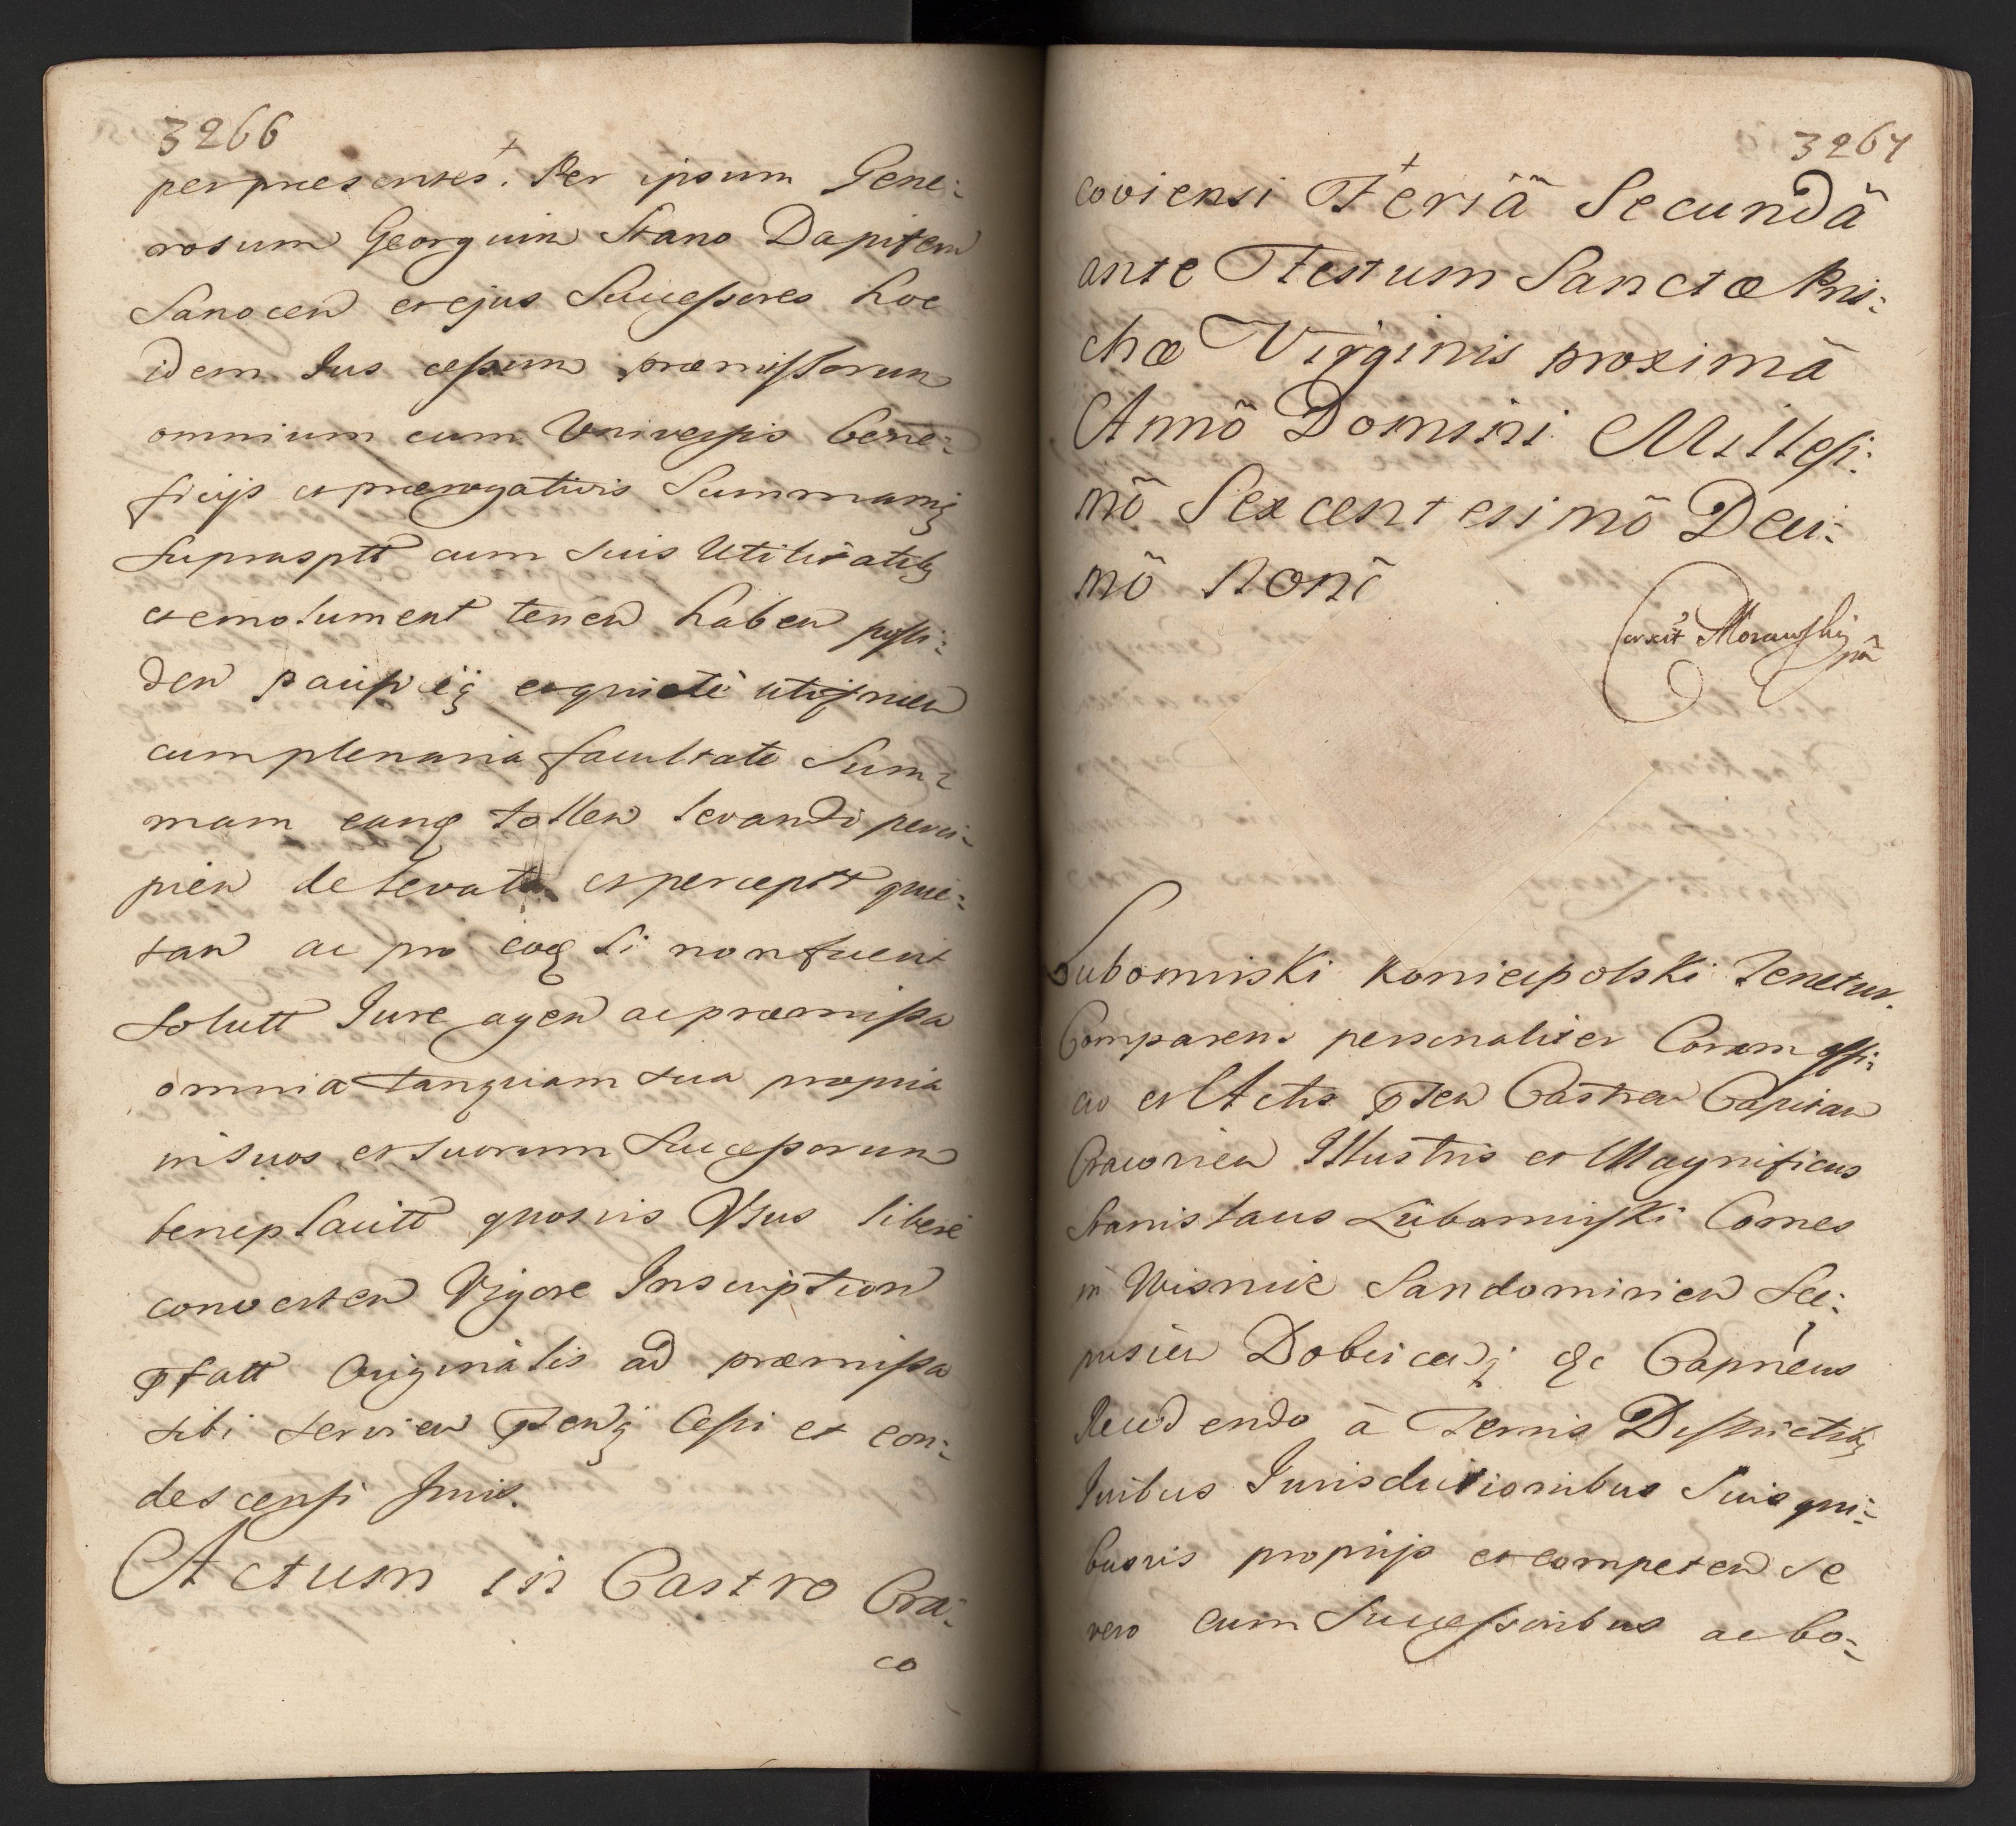 3266
per praesentes. Per ipsum Gene:
rosum Georgium Stano Dapiferu
Sanocen et ejus Successores hoc
idem Jus cessum praemissorum
omnium cum Universis bene:
ficijs et praerogativis Summamq
suprasptt cum suis Utilitatibq
et emolument tenen haben possi:
den pacifice et quiete utifruen
cum plenaria facultate Sum:
mam eanq tollen levandi perci:
pien de levata et percept quie:
tan ac pro eaq si non fuerit
solutt Jure agen ac praemissa
omnia tanquam sua propria
in suos et suorum Successorum
beneplacitt quosvis Usus liberè
converten Vigore Inscription
pfatt Originalis ad praemissa
sibi servien ptenq Cessi et con:
descensi Juris.
Actum in Castro Cra:
co
3267
coviensi Feriâ Secundâ
ante Festum Sanctae Pris:
chae Virginis proximâ
Annô Domini Millesi:
mô Sexcentesimô Deci:
mô Nonô
Corexit Morawski
mp
Lubomirski Koniecpolski Tenetur.
Comparens personaliter Coram offi:
cio et Actis pten Castren Capitan
Cracovien Illustris et Magnificus
Stanislaus Lubomirski Comes
in Wisnicz Sandomirien Sce:
pusien Dobcicenq &c Capneus
Recedendo à Terris Districtibq
Juribus Jurisdictionibus Suis qui:
busvis proprijs et competen se
vero cum Successoribus ac bo: